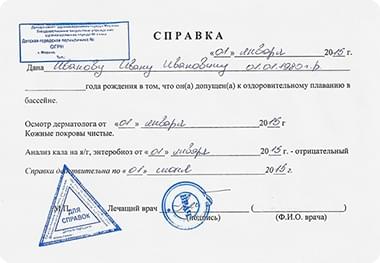 Департамент здравоохранения города Москвы
Государственное бюджетное учреждение
здравоохранения города Москвы
Детская городская поликлиника №
ОГРН
г. Москва
СПРАВКА
«01» января 2015г
Дана Иванову Ивану Ивановичу 01.01.1980г.р
года рождения в том, что он(а) допущен(а) к оздоровительному плаванию в
бассейне.
Осмотр дерматолога от «01» января 2015 г
Кожные покровы чистые.
Анализ кала на я/г, энтеробиоз от «01» января 2015 - отрицательный
Справка действительна по «01» июня 2015 г
М.П. Лечащий врач
(подпись) (Ф.И.О. врача)
ДЛЯ
СПРАВОК
ВРАЧ